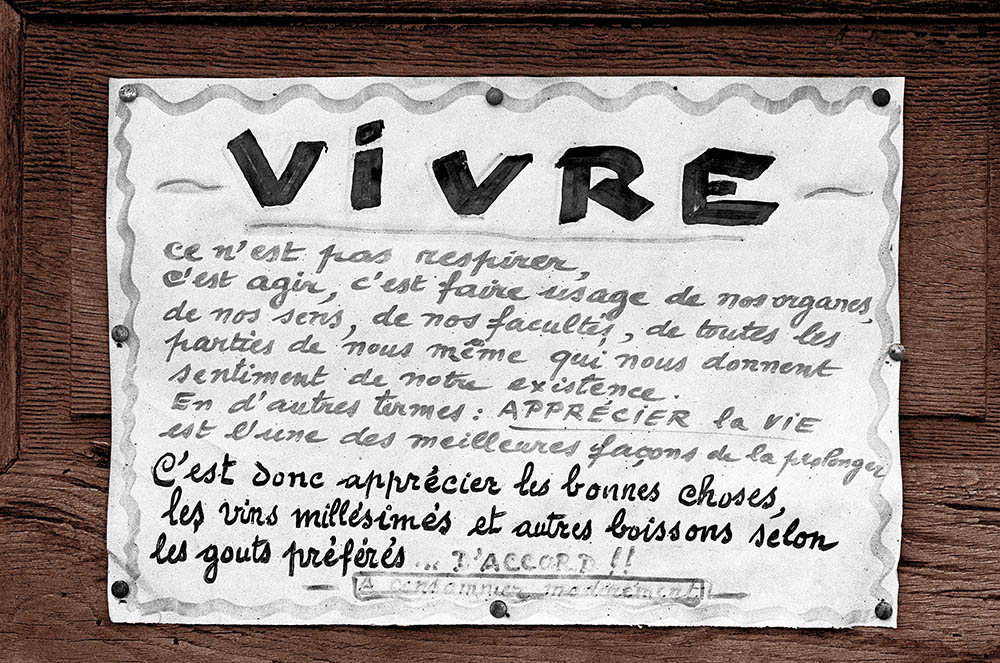 ViVRE
ce n'est pas respirer,
c'est agir, c'est faire usage de nos organes,
de nos sens, de nos facultés, de toutes les
parties de nous même qui nous donnent
sentiment de notre existence.
En d'autres termes : APPRÉCIER la ViE
est l'une des meilleures façons de la prolonger
C'est donc apprécier les bonnes choses,
les vins millésimés et autres boissons selon
les gouts préférés... D'ACCORD !!
A consommer modérément